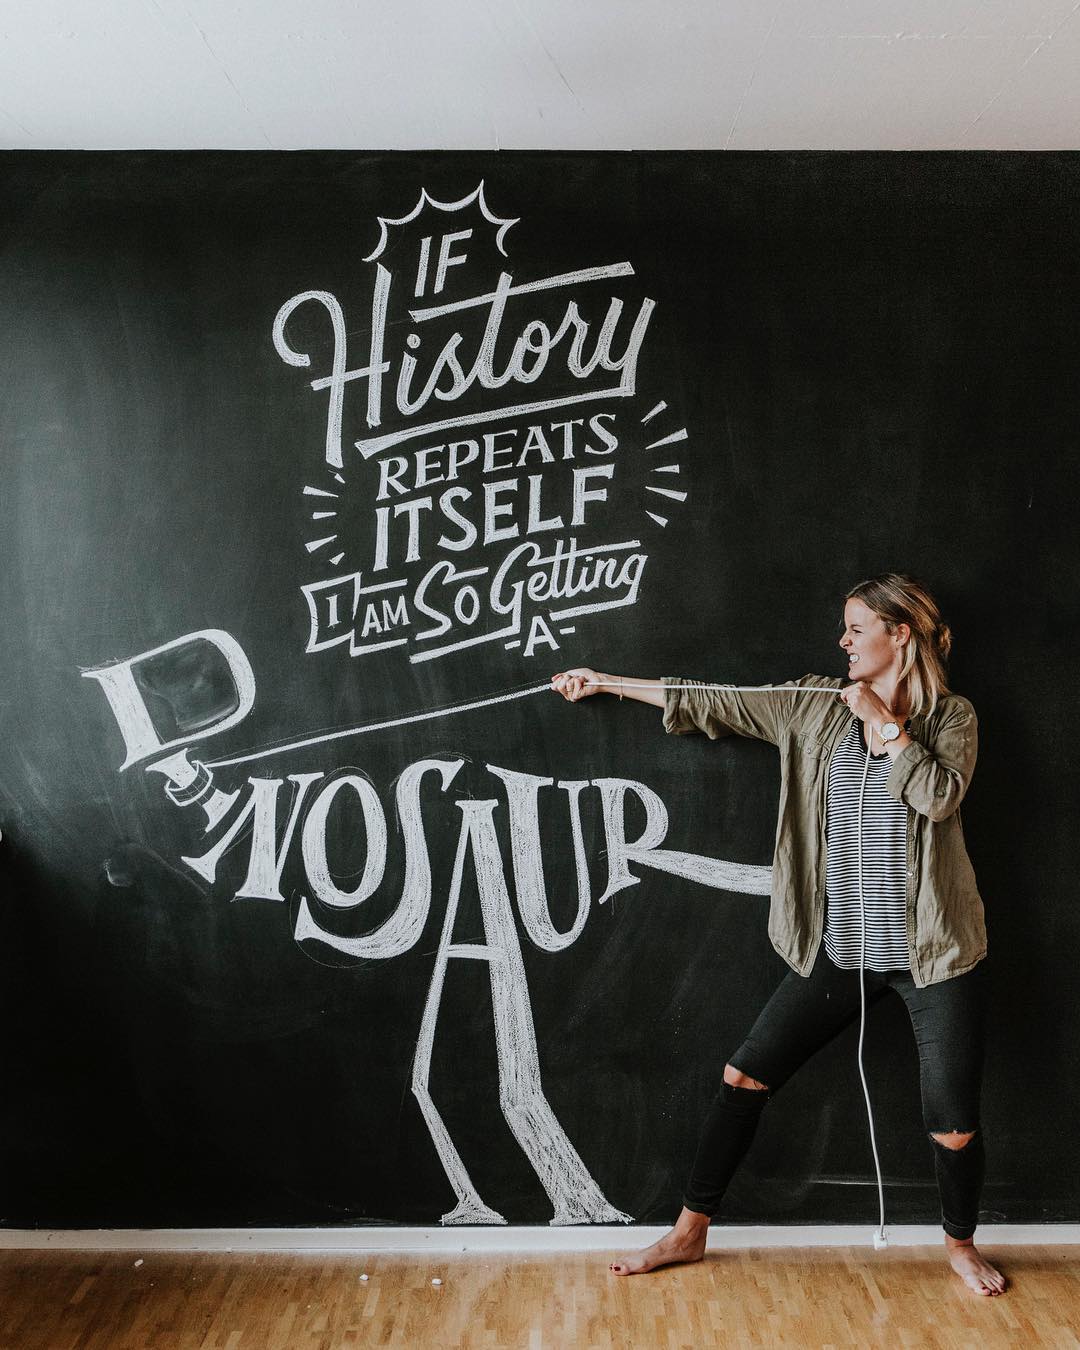 IF
History
REPEATS
ITSELF
I AM So Getting
-A-
DINOSAUR